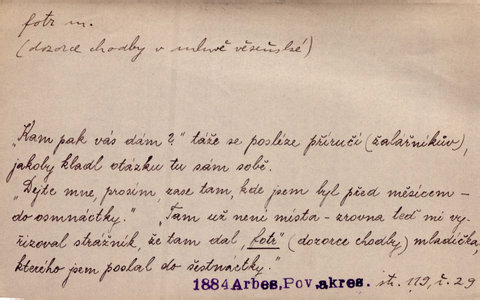 fotr m.
(dozorce chodby v mluvě věseňské)
„Kam pak vás dám?“ táže se posléze příručí (žalářníkův),
jakoby kladl otázku tu sám sobě.
„Dejte mne, prosím, zase tam, kde jsem byl před měsícem –
do osmnáctky.“ „Tam už není místa – zrovna teď mi vy-
řizoval strážník, že tam dal „fotr“ (dozorce chodby) mladíčka,
kterého jsem poslal do šestnáctky.“
1884 Arbes, Pov. akres. str. 119, č. 29